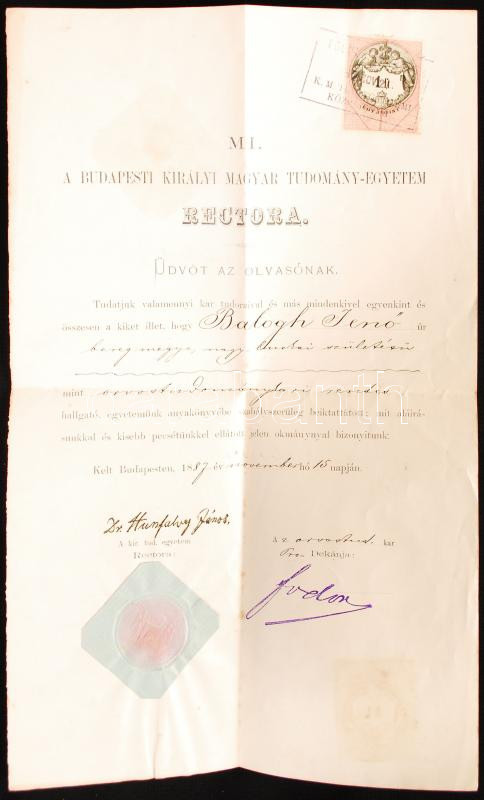 MI.
A BUDAPESTI KIRÁLYI MAGYAR TUDOMÁNY-EGYETEM
RECTORA.
ÜDVÖT AZ OLVASÓNAK.
Tudatjuk valamennyi kar tudoraival és más mindenkivel egyenkint és
összesen a kiket illet, hogy Balogh Jenő úr
bereg megye, nagy születésü
mint orvostudománykari rendes
hallgató, egyetemünk anyakönyvébe szabályszerüleg beiktattatott; mit aláírá-
sunkkal és kisebb pecsétünkkel ellátott jelen okmánynyal bizonyítunk.
Kelt Budapesten, 1887 év november hó 15 napján.
Dr. Hunfalvy János.
A kir. tud. egyetem
Rectora:
Az orvostud. kar
Pro Dekánja:
Fodor